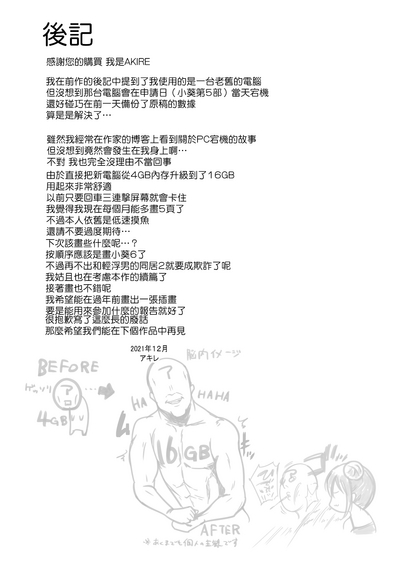 後記
感謝您的購買 我是AKIRE
我在前作的後記中提到了我使用的是一台老舊的電腦
但沒想到那台電腦會在申請日（小葵第5部）當天宕機
還好碰巧在前一天備份了原稿的數據
算是是解決了…
雖然我經常在作家的博客上看到關於PC宕機的故事
但沒想到竟然會發生在我身上啊…
不對 我也完全沒理由不當回事
由於直接把新電腦從4GB內存升級到了16GB
用起來非常舒適
以前只要回車三連擊屏幕就會卡住
我覺得我現在每個月能多畫5頁了
不過本人依舊是低速摸魚
還請不要過度期待…
下次該畫些什麼呢…？
按順序應該是畫小葵6了
不過再不出和輕浮男的同居2就要成欺詐了呢
我姑且也在考慮本作的續篇了
接著畫也不錯呢
我希望能在過年前畫出一張插畫
要是能用來參加什麼的報告就好了
很抱歉寫了這麼長的廢話
那麼希望我們能在下個作品中再見
2021年12月
アキレ
脳内イメージ
BEFORE
?
ゲッソリ
4GB
?
HA
HA
HAHA
16GB
AFTER
※あくまでも個人の主観です